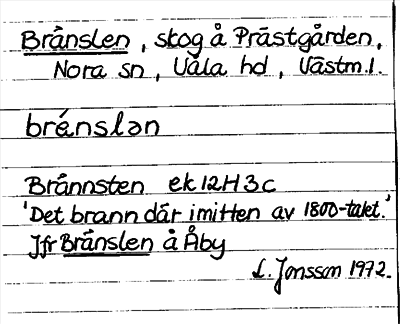 Bränslen, skog å Prästgården,
Nora sn, Våla hd, Västm.l.
brénslən
Brännsten ek 12H3c
'Det brann där i mitten av 1800-talet.'
Jfr Bränslen å Åby
L. Jonsson 1972.